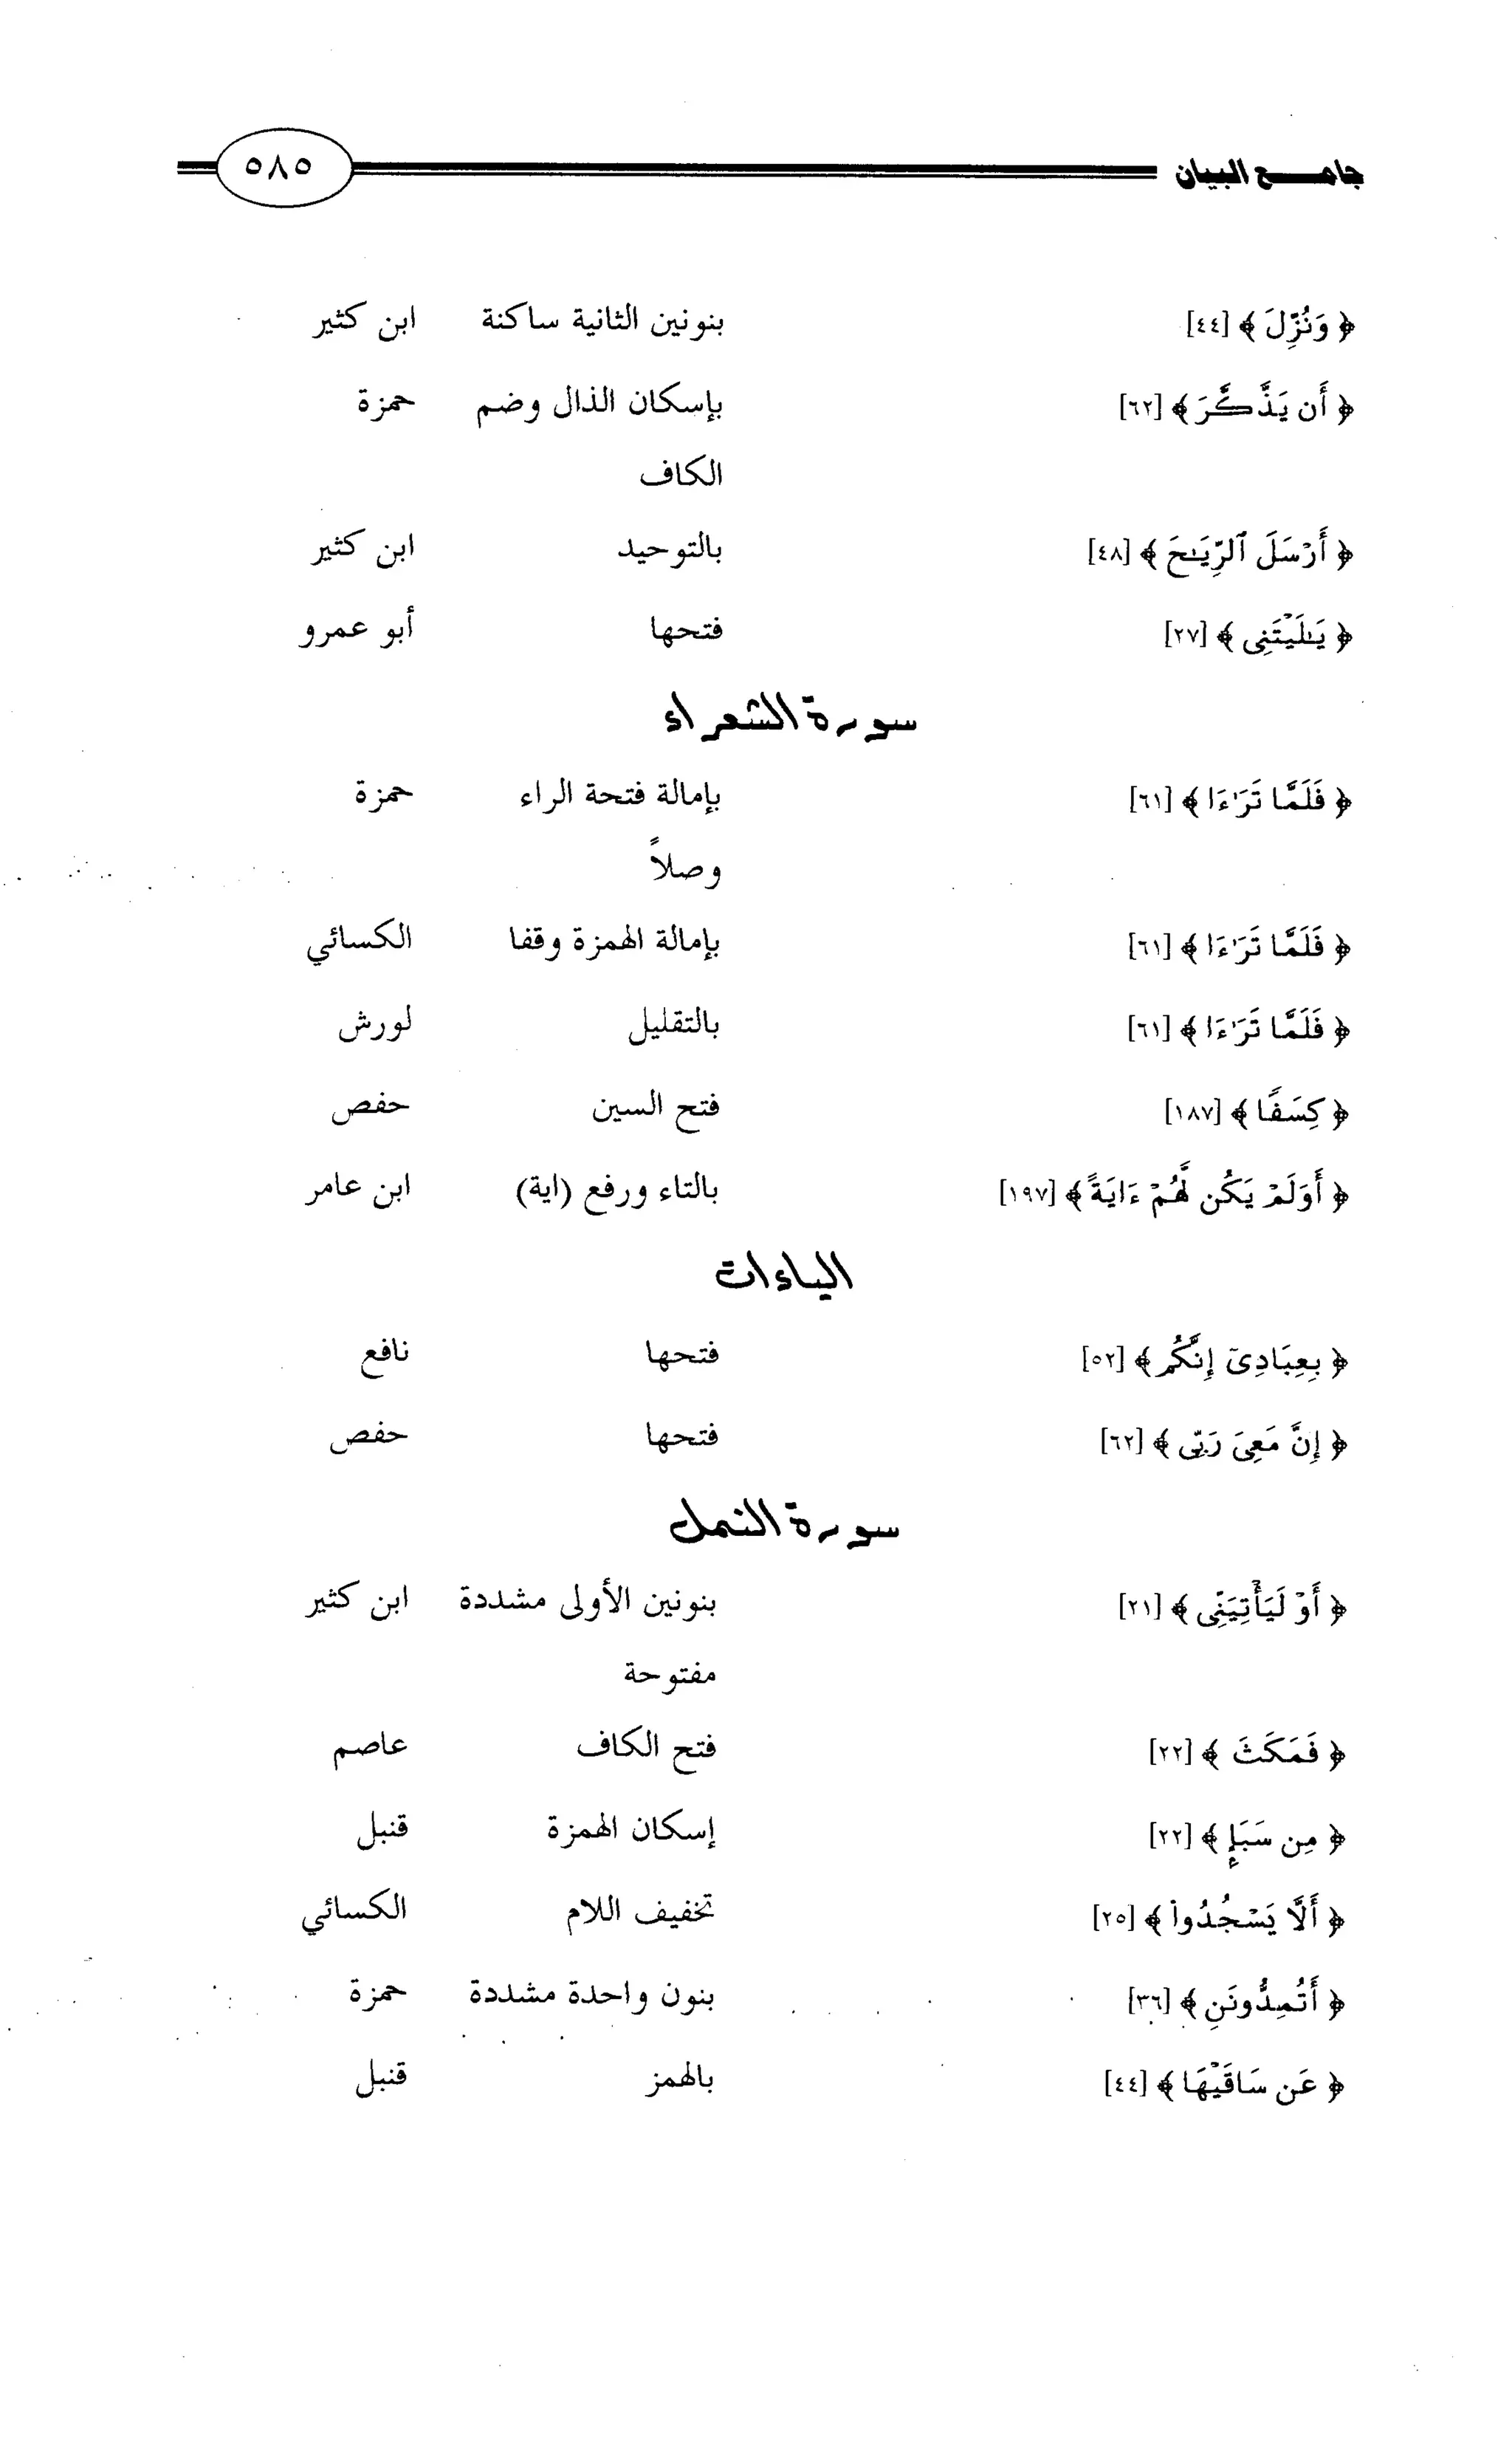 جامع البيان ٥٨٥
﴿ وَنُزِّلَ ﴾ [٤٤] بنونين الثانية ساكنة ابن كثير
﴿ أَن يَذَّكَّرَ ﴾ [٦٢] بإسكان الذال وضم حمزة
الكاف
﴿ أَرْسَلَ ٱلرِّيَـٰحَ ﴾ [٤٨] بالتوحيد ابن كثير
﴿ يَـٰلَيْتَنِى ﴾ [٢٧] فتحها أبو عمرو
سورة الشعراء
﴿ فَلَمَّا تَرَٰٓءَا ﴾ [٦١] بإمالة فتحة الراء حمزة
وصلاً
﴿ فَلَمَّا تَرَٰٓءَا ﴾ [٦١] بإمالة الهمزة وقفا الكسائي
﴿ فَلَمَّا تَرَٰٓءَا ﴾ [٦١] بالتقليل لورش
﴿ كِسَفًا ﴾ [١٨٧] فتح السين حفص
﴿ أَوَلَمْ يَكُن لَّهُمْ ءَايَةً ﴾ [١٩٧] بالتاء ورفع (اية) ابن عامر
الياءات
﴿ بِعِبَادِىٓ إِنَّكُم ﴾ [٥٢] فتحها نافع
﴿ إِنَّ مَعِىَ رَبِّى ﴾ [٦٢] فتحها حفص
سورة النمل
﴿ أَوْ لَيَأْتِيَنِّى ﴾ [٢١] بنونين الأولى مشددة ابن كثير
مفتوحة
﴿ فَمَكَثَ ﴾ [٢٢] فتح الكاف عاصم
﴿ مِن سَبَإٍ ﴾ [٢٢] إسكان الهمزة قنبل
﴿ أَلَّا يَسْجُدُوا۟ ﴾ [٢٥] تخفيف اللام الكسائي
﴿ أَتُمِدُّونَنِ ﴾ [٣٦] بنون واحدة مشددة حمزة
﴿ عَن سَاقَيْهَا ﴾ [٤٤] بالهمز قنبل